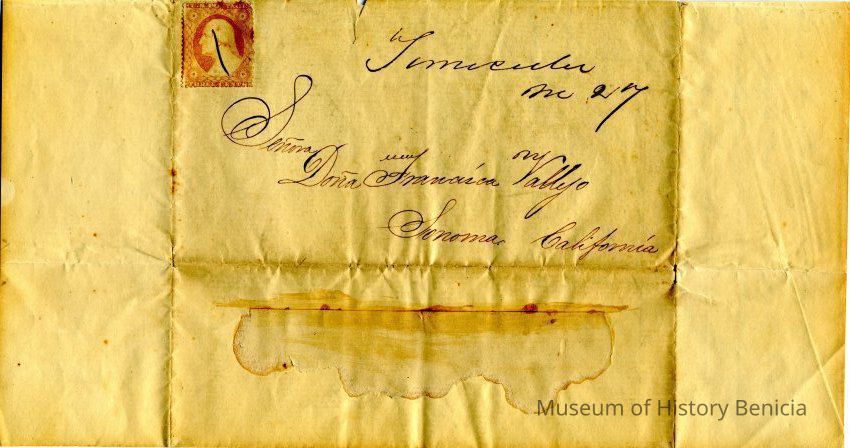 Temecula
27
Señora
Doña Francisca Vallejo
Sonoma California
Museum of History Benicia